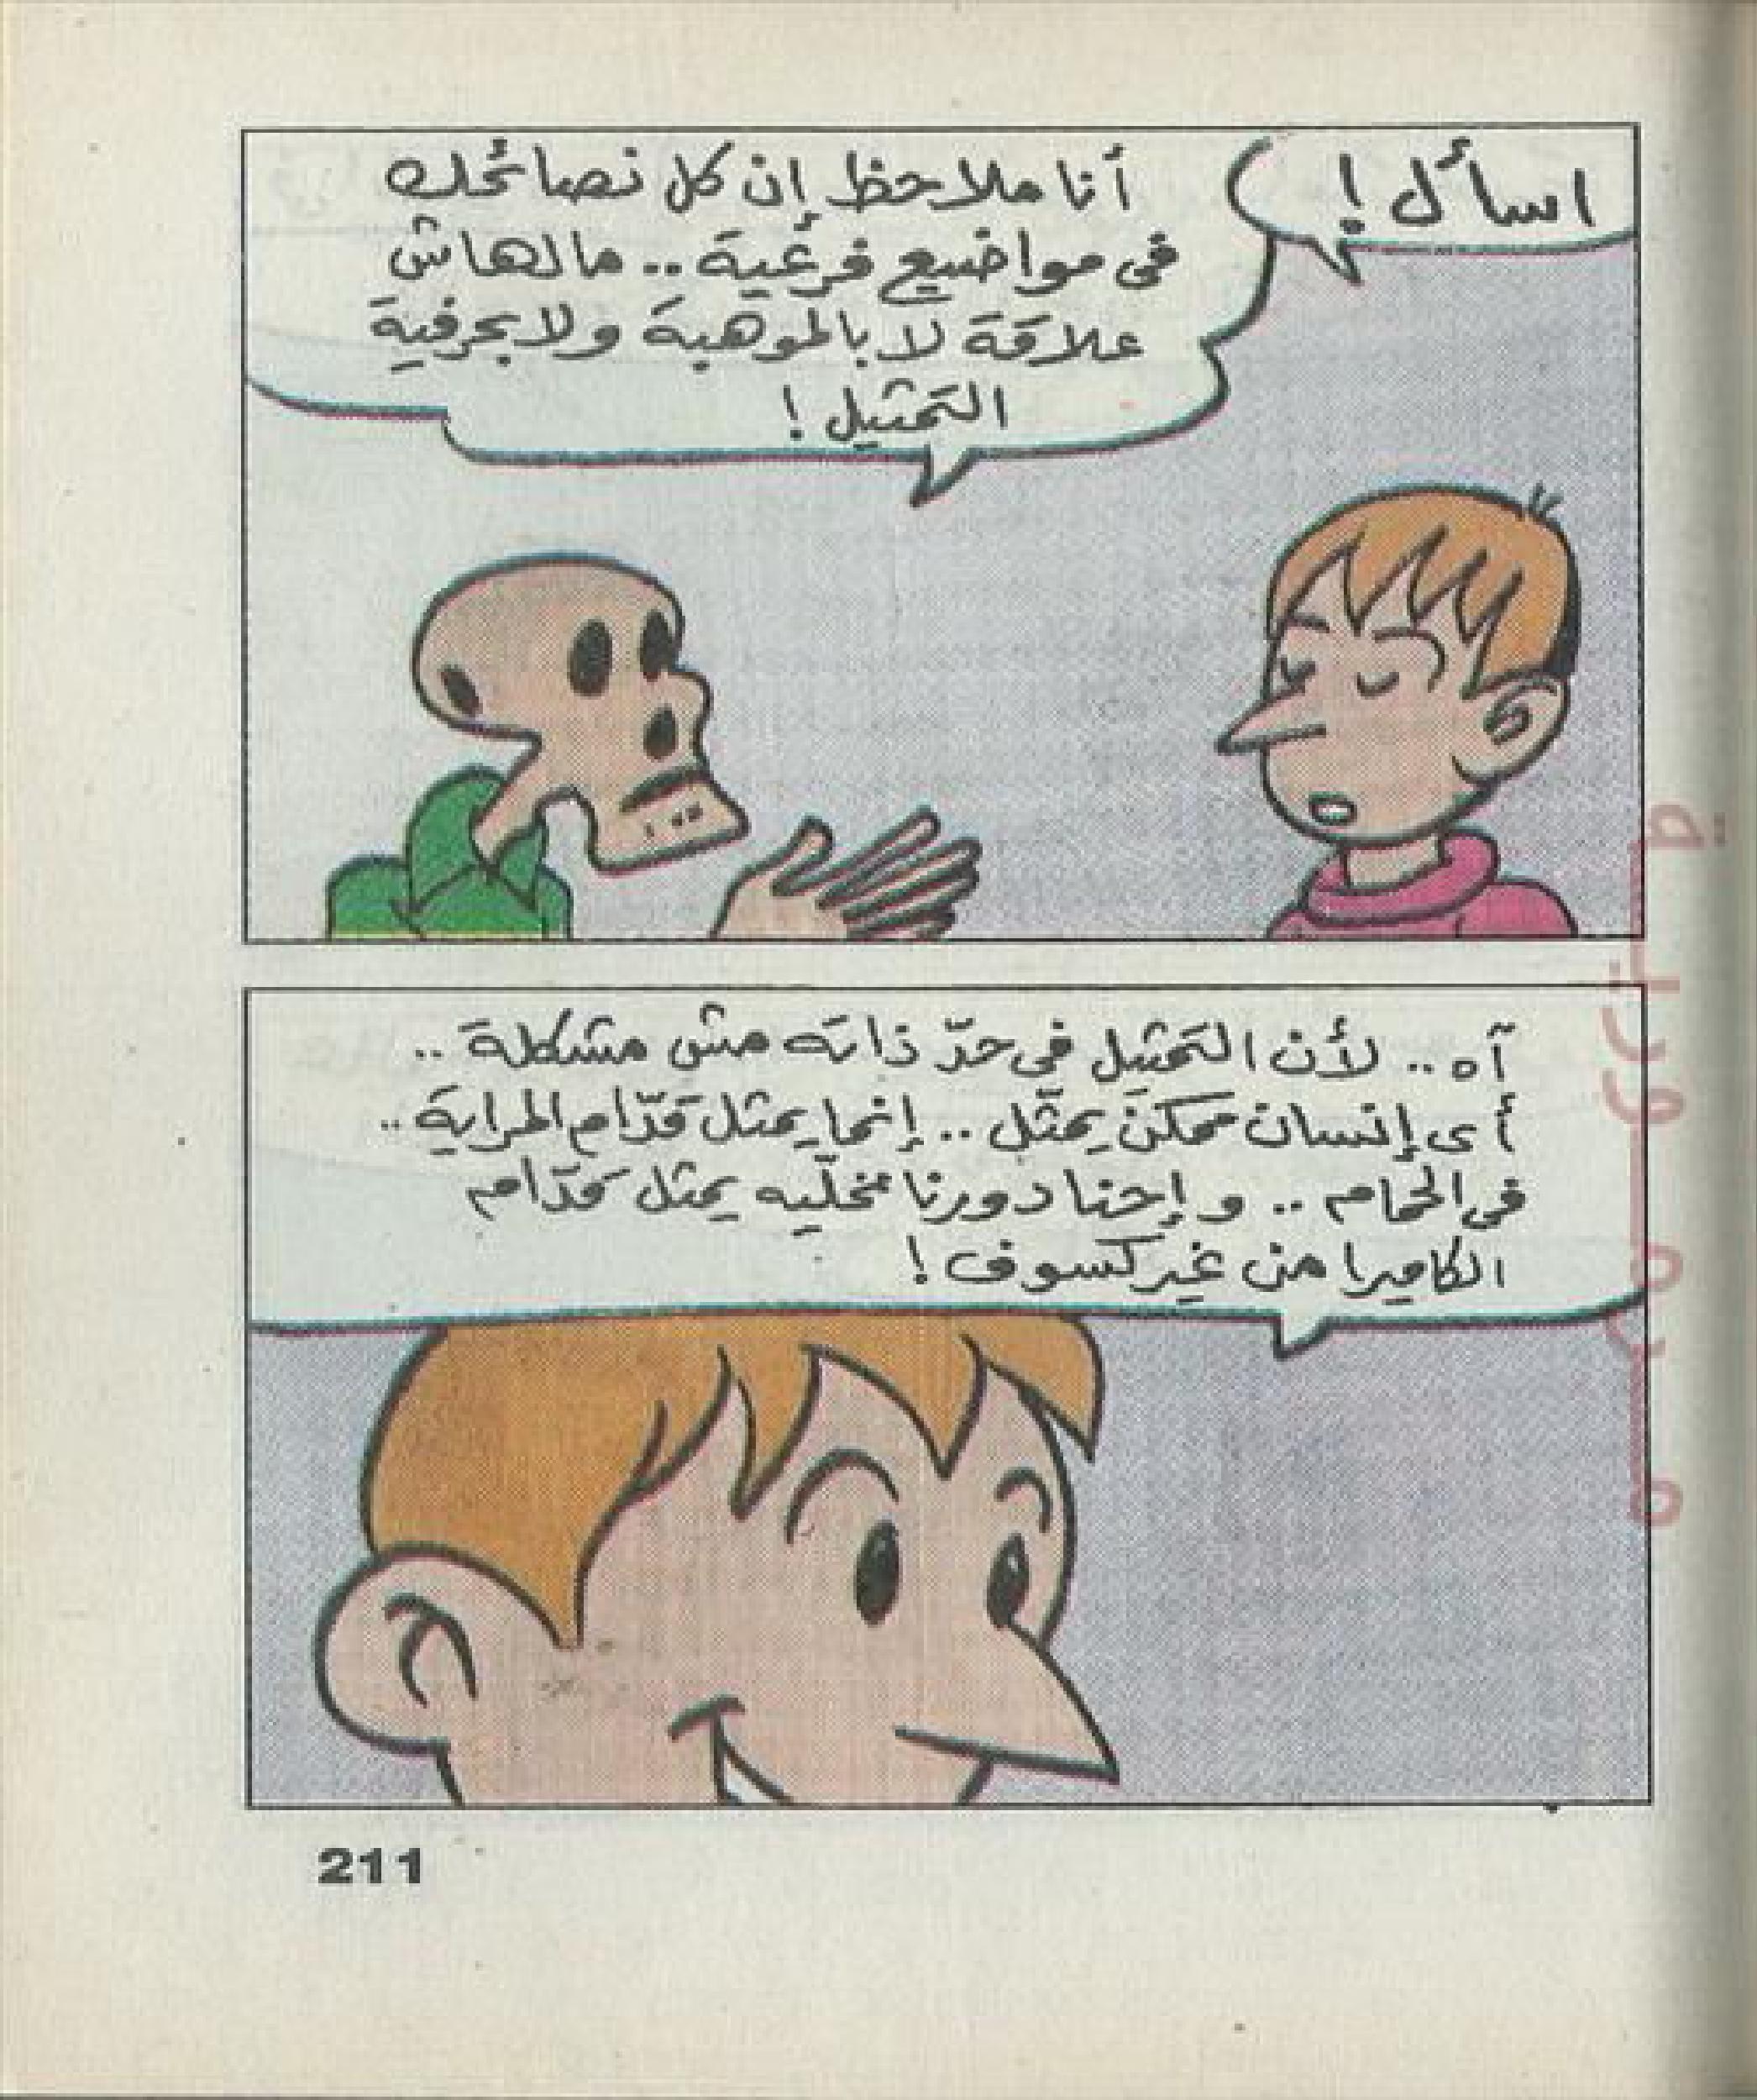 اسأل !
أنا ملاحظ إن كل نصائحك
فى مواضيع فرعية .. مالهاش
علاقة لا بالموهبة ولا بحرفية
التمثيل !
آه .. لأن التمثيل فى حدّ ذاته مش مشكلة ..
أى إنسان ممكن يمثّل .. إنما يمثل قدّام المراية ..
فى الحمّام .. وإحنا دورنا نخلّيه يمثل قدّام
الكاميرا من غير كسوف !
211